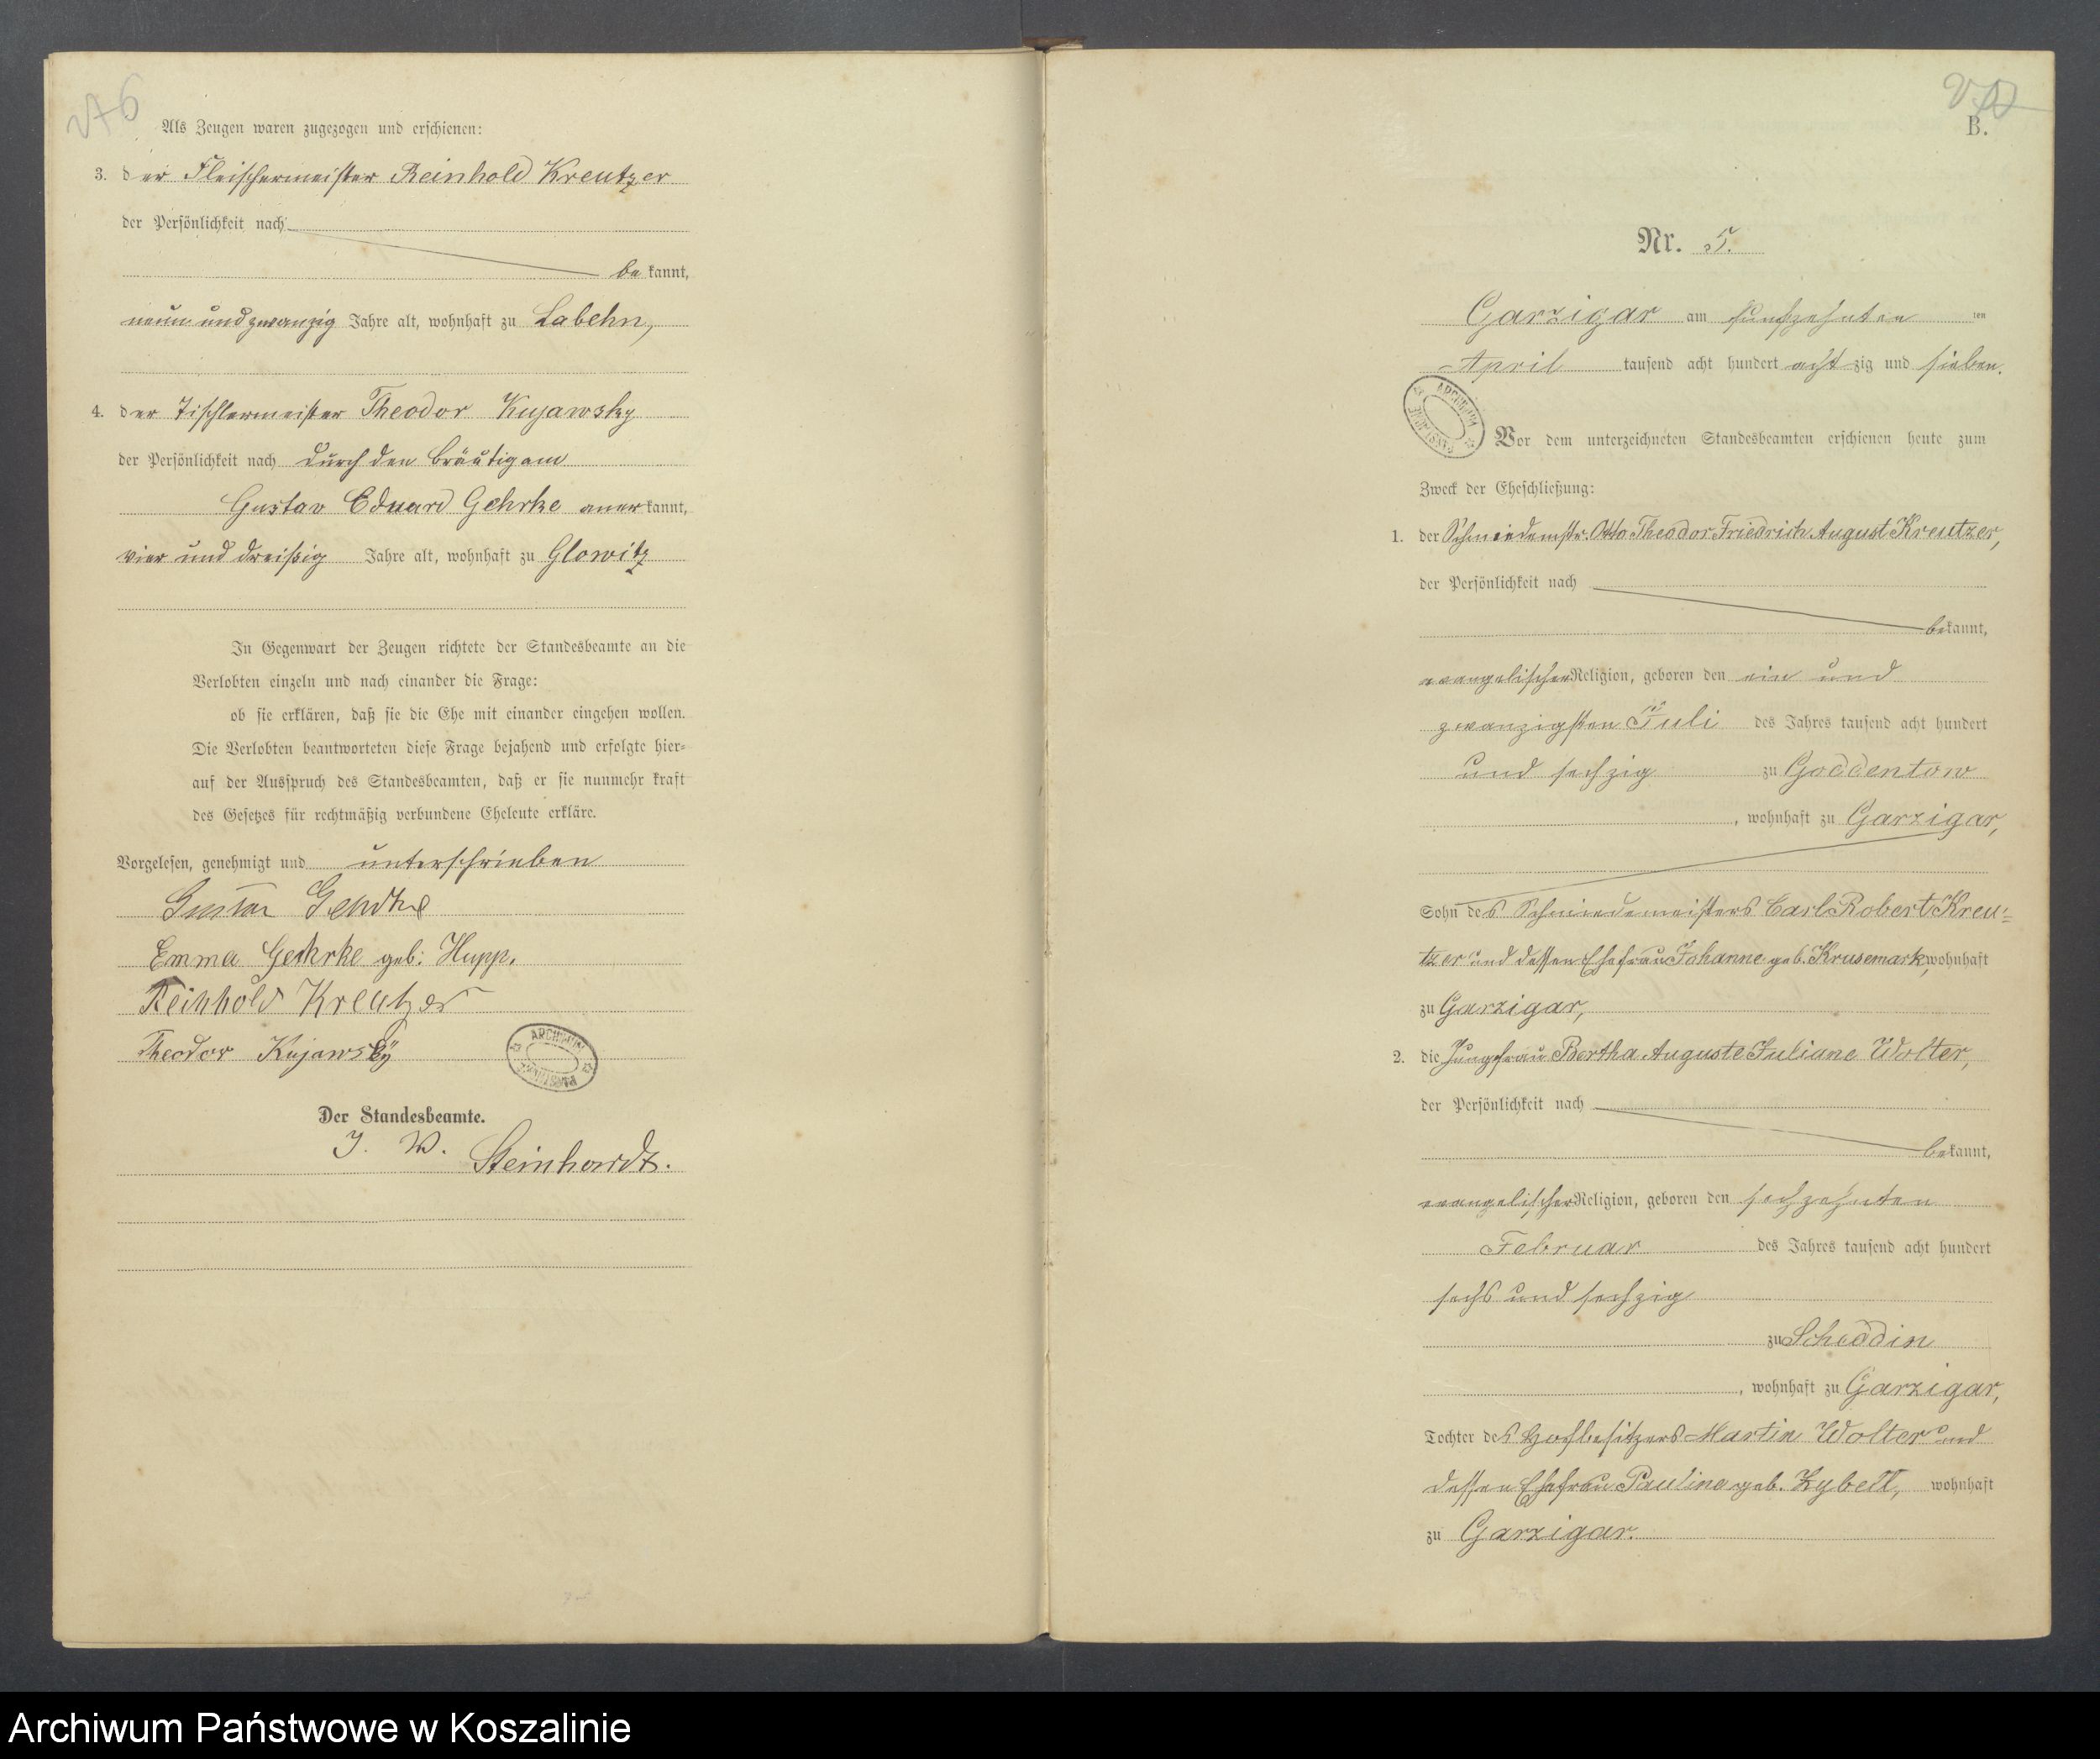 V76
Als Zeugen waren zugezogen und erschienen:
3. der Fleischermeister Reinhold Kreutzer
der Persönlichkeit nach
bekannt,
neun und zwanzig Jahre alt, wohnhaft zu Labehn,
4. der Tischlermeister Theodor Kujawsky
der Persönlichkeit nach durch den Bräutigam
Gustav Eduard Gehrke anerkannt,
vier und dreißig Jahre alt, wohnhaft zu Glowitz
In Gegenwart der Zeugen richtete der Standesbeamte an die
Verlobten einzeln und nach einander die Frage:
ob sie erklären, daß sie die Ehe mit einander eingehen wollen.
Die Verlobten beantworteten diese Frage bejahend und erfolgte hier=
auf der Ausspruch des Standesbeamten, daß er sie nunmehr kraft
des Gesetzes für rechtmäßig verbundene Eheleute erkläre.
Vorgelesen, genehmigt und unterschrieben
Gustav Gehrke
Emma Gehrke geb: Hupp.
Reinhold Kreutzer
Theodor Kujawsky
ARCHIWUM PAŃSTWOWE
Der Standesbeamte.
J. W. Steinhardt.
B.
Nr. 5.
Garzigar am funfzehnten ten
April tausend acht hundert achtzig und sieben.
ARCHIWUM PAŃSTWOWE
Vor dem unterzeichneten Standesbeamten erschienen heute zum
Zweck der Eheschließung:
1. der Schmiedemstr. Otto Theodor Friedrich August Kreutzer,
der Persönlichkeit nach
bekannt,
evangelischer Religion, geboren den ein und
zwanzigsten Juli des Jahres tausend acht hundert
und sechzig zu Goddentow
, wohnhaft zu Garzigar,
Sohn des Schmiedemeisters Carl Robert Kreu=
tzer und dessen Ehefrau Johanne geb. Krusemark, wohnhaft
zu Garzigar,
2. die Jungfrau Bertha Auguste Juliane Wolter,
der Persönlichkeit nach
bekannt,
evangelischer Religion, geboren den sechzehnten
Februar des Jahres tausend acht hundert
sechs und sechzig
zu Scheddin
, wohnhaft zu Garzigar,
Tochter des Hofbesitzers Martin Wolter und
dessen Ehefrau Pauline geb. Zybell, wohnhaft
zu Garzigar.
Archiwum Państwowe w Koszalinie